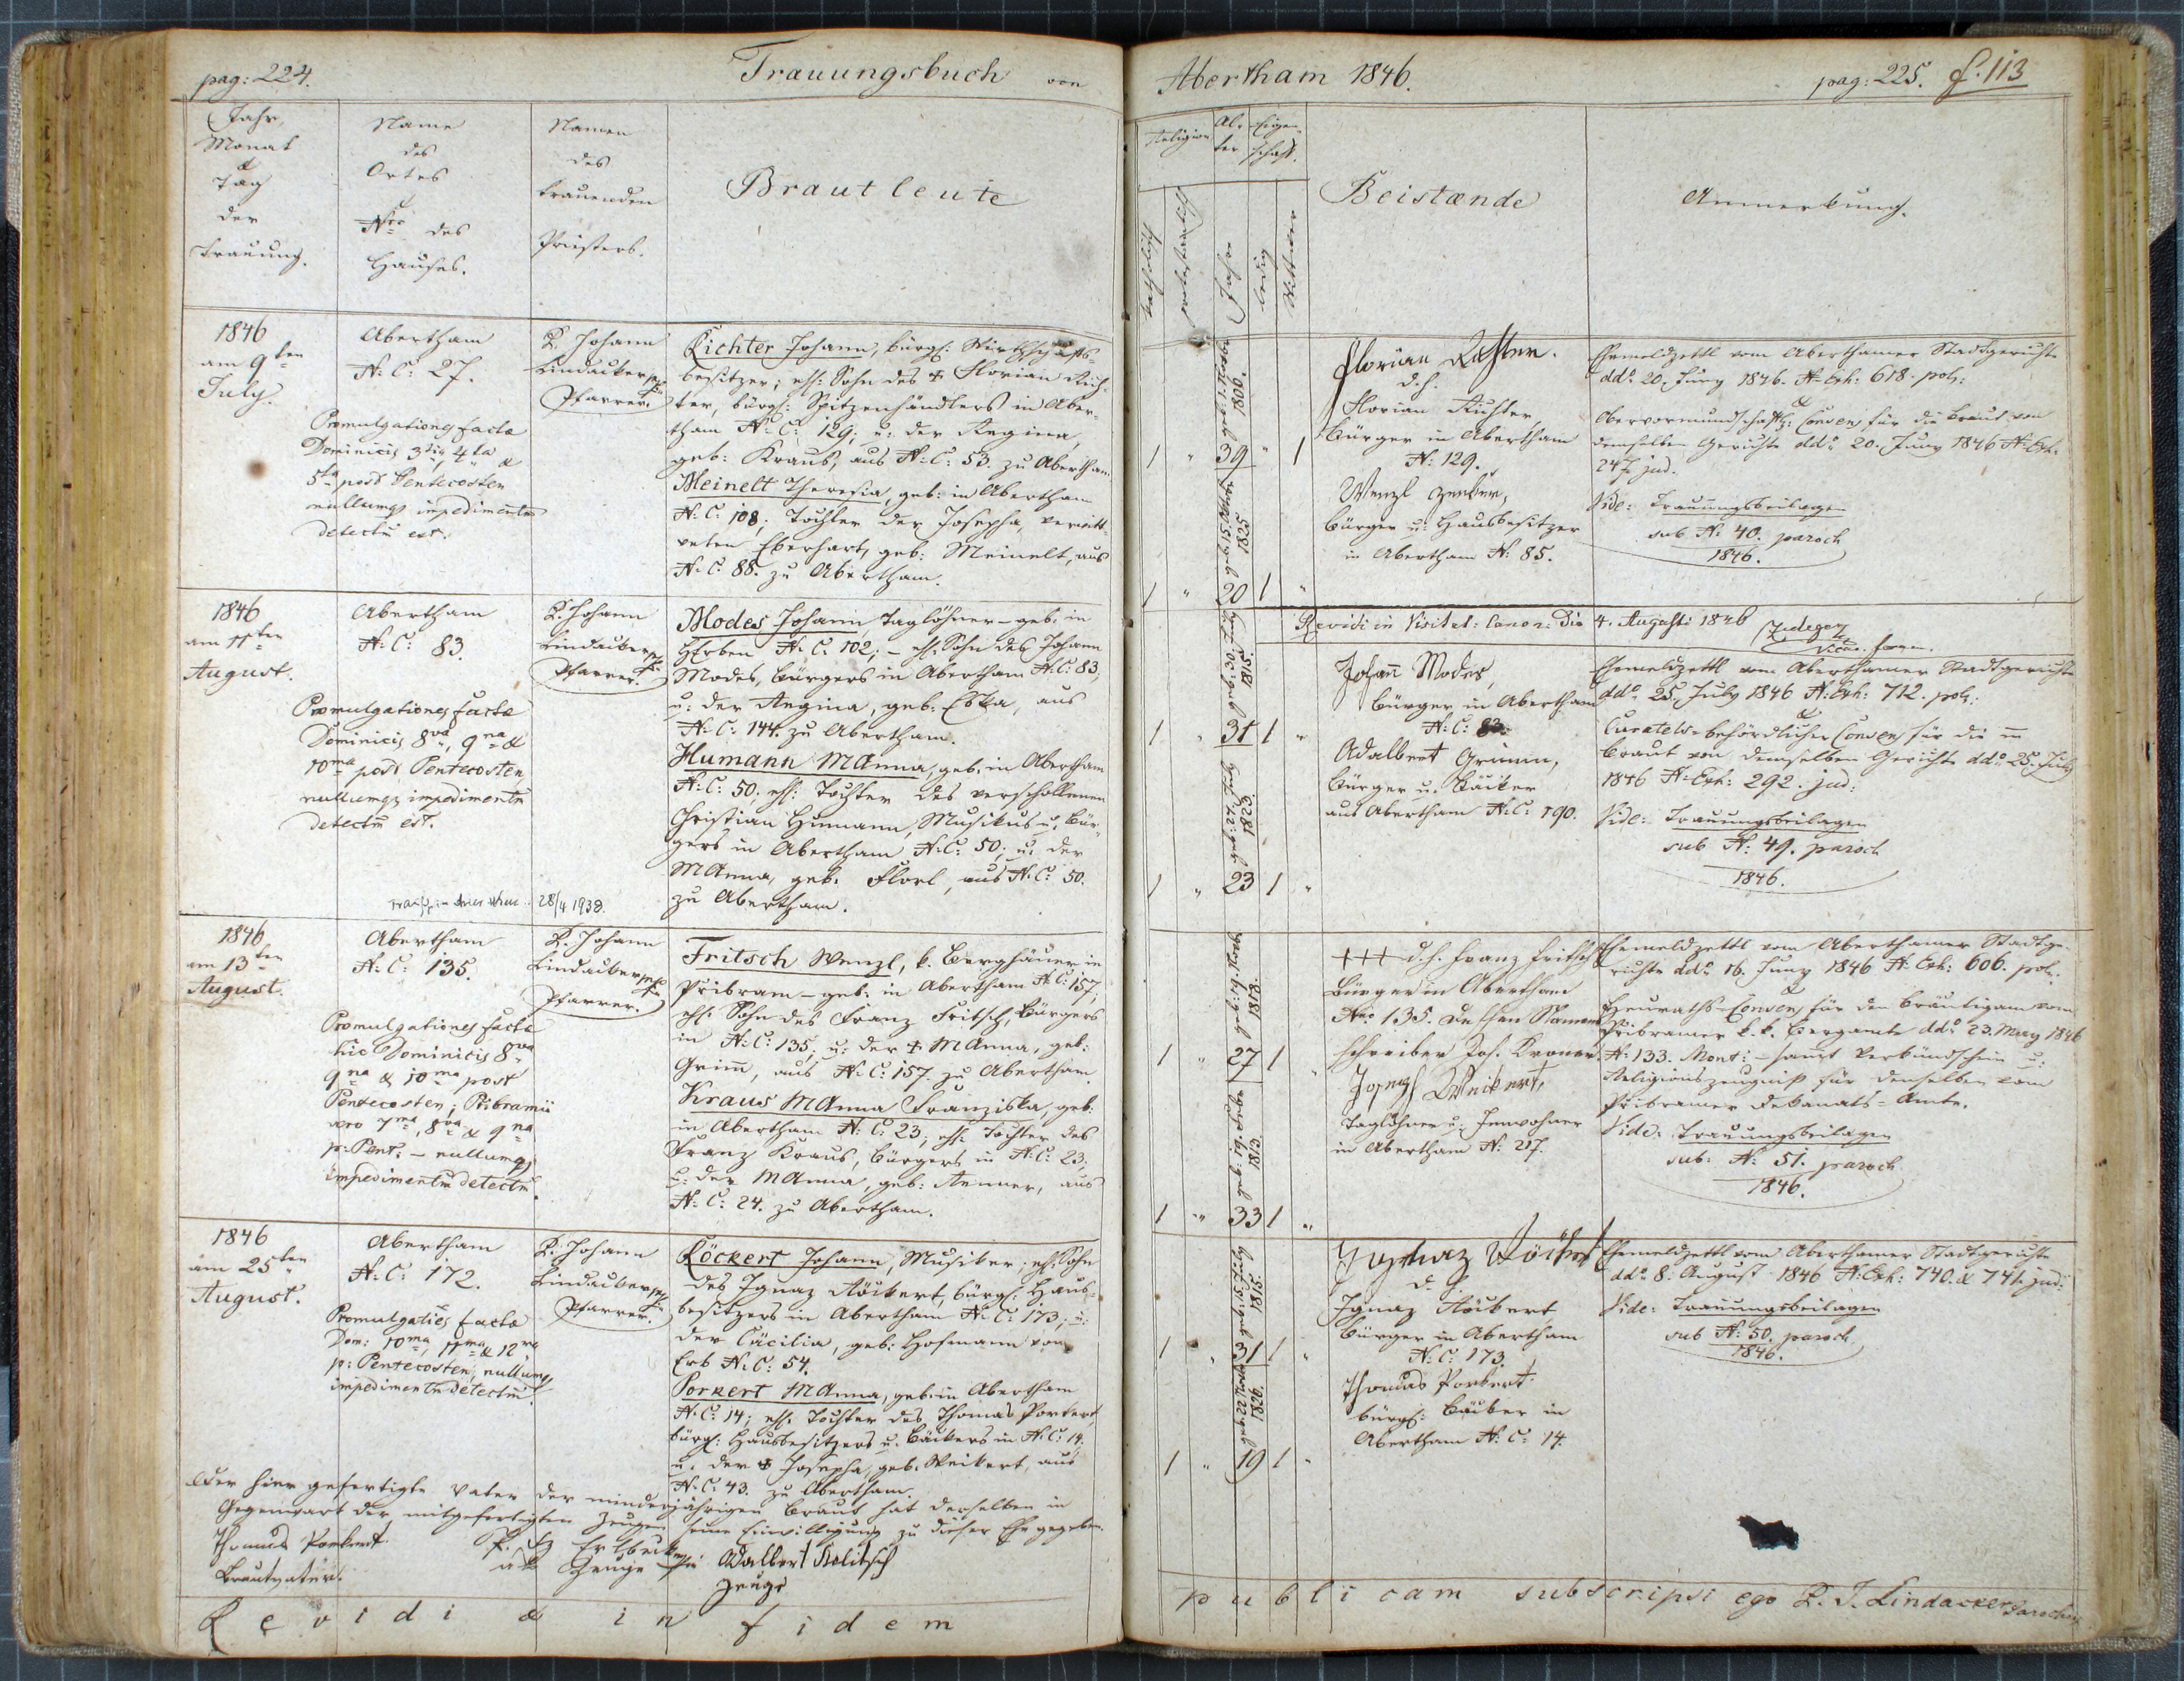 pag: 224.
Trauungsbuch von
Jahr,
Monat
&
Tag
der
Trauung.
Name
des
Ortes
&
Nro des
Hauses.
Namen
des
trauenden
Priesters.
Brautleute
1846
am 9ten
July.
Abertham
N. C. 27.
P. Johann
Lindacker
Pfarrer.
Promulgationes factæ
Dominicis 3tia, 4ta &
5ta post Pentecosten
nullumq impedimentu
detectu est.
Richter Johann, bürgl: Wirthschafts-
besitzer; ehl: Sohn des + Florian Rich-
ter, bürgl: Spitzenhändlers in Aber-
tham N: C: 129; u: der Regina,
geb: Kraus, aus N: C: 53. zu Abertham.
Meinelt Theresia, geb: in Abertham
N: C: 108; Tochter der Josepha, verwitt-
weten Eberhart, geb: Meinelt, aus
N: C: 88. zu Abertham.
1846
am 11ten
August.
Abertham
N: C: 83.
P. Johann
Lindacker
Pfarrer.
Promulgationes factæ
Dominicis 8va, 9na &
10ma post Pentecosten
nullumq impedimentu
detectu est.
28/4 1938.
Modes Johann, Taglöhner - geb: in
N: C: 102; - ehl: Sohn des Johann
Modes, Bürgers in Abertham N: C: 83,
u: der Regina, geb: aus
N: C: 144. zu Abertham.
Humann MAnna, geb: in Abertham
N: C: 50; ehl: Tochter des verschollenen
Christian Humann, Musikus u: Bür-
gers in Abertham N: C: 50; u: der
MAnna, geb: Florl, aus N: C: 50.
zu Abertham.
1846
am 13ten
August.
Abertham
N: C: 135.
P. Johann
Lindacker
Pfarrer.
Promulgationes factæ
hic Dominicis 8va
9na & 10ma post
Pentecosten; Pribramii
vero 7ma, 8va & 9na
p: Pent: - nullumq
impedimentu detectu.
Fritsch Wenzl, k. Berghäuer in
Pribram - geb: in Abertham N: C: 157;
ehl: Sohn des Franz Fritsch, Bürgers
in N: C: 135, u: der + MAnna, geb:
Grim, aus N: C: 157. zu Abertham.
Kraus MAnna Franziska, geb:
in Abertham N: C: 23; ehl: Tochter des
Franz Kraus, Bürgers in N: C: 23;
u: der MAnna, geb: Renner, aus
N: C: 24. zu Abertham.
1846
am 25ten
August.
Abertham
N: C: 172.
P. Johann
Lindacker
Pfarrer.
Promulgatioes factæ
Dom: 10ma, 11ma & 12ma
p: Pentecosten, nullumq
impedimentu detectum.
Röckert Johann, Musiker; ehl: Sohn
des Ignaz Röckert, bürgl: Haus-
besitzers in Abertham N: C: 173; u:
der Cäcilia, geb: Hofmann von
Erb N: C: 54.
Porkert MAnna, geb: in Abertham
N: C: 14; ehl: Tochter des Thomas Porkert,
bürgl: Hausbesitzers u: Bäckers in N: C: 14.
u: der + Josepha, geb: Weikert, aus
N: C: 43. zu Abertham.
Der hier gefertigte Vater der minderjährigen Braut hat derselben in
Gegenwart der mitgefertigten Zeugen seine Einwilligung zu dieser Ehe gegeben.
Thomas Porkert
Brautvater.
als Zeuge
Adalbert Kolitsch
Zeuge
Revidi & in fidem
Abertham 1846.
pag: 225. f. 113
Religion
Al-
ter
Eigen-
schaft.
katholisch
protestantisch
Jahre
ledig
Wittwer
Beistænde
Anmerkung.
1 " 39 " 1
1806.
Florian Richter.
d. h.
Florian Richter
Bürger in Abertham
N: 129.
Wenzl Zenker,
Bürger u: Hausbesitzer
in Abertham N: 85.
1825
1 " 20 1 "
Ehemeldzettl vom Aberthamer Stadtgerichte
ddo 20. Juny 1846. N: Exh: 618. pol:
&
Obervormundschaftl: Consens für die Braut von
demselben Gerichte ddo 20. Juny 1846 N: Exh:
247. jud.
Vide: Trauungsbeilagen
sub N: 40. paroch
1846.
Revidi in Visitat: Canon: die 4. August: 1846
geb: 30. July 1815.
1 " 31 1 "
Johann Modes,
Bürger in Abertham
N: C: 83.
Adalbert Grimm,
Bürger u: Bäcker
aus Abertham N: C: 190.
1823.
1 " 23 1 "
Ehemeldzettl vom Aberthamer Stadtgerichte
ddo 25. July 1846 N: Exh: 712. pol:
&
Curatels-behördlicher Consens für die
Braut von demselben Gerichte ddo 25. July
1846 N: Exh: 292. jud:
Vide: Trauungsbeilagen
sub N: 49. paroch
1846.
1 " 27 1 "
+++ d. h. Franz Fritsch
Bürger in Abertham
Nro 135. dessen Namens-
schreiber Jos. Kraner
Joseph Weikert,
Taglöhner u: Innwohner
in Abertham N: 217.
1813
1 " 33 1 "
Ehemeldzettl vom Aberthamer Stadtge-
richte ddo 16. Juny 1846 N: Exh: 606. pol:
&
Heuraths-Consens für den Bräutigam vom
Pribramer k. k. Bergamte ddo 23. May 1846
N: 133. Mont: - sammt Verkündschein u:
Religionszeugniß für denselben vom
Pribramer Dekanats-Amte.
Vide: Trauungsbeilagen
sub: N: 51. paroch
1846.
geb: 15. July 1815.
1 " 31 1 "
Ignaz Röckert
d. h.
Ignaz Röckert
Bürger in Abertham
N: C: 173.
Thomas Porkert
bürgl: Bäcker in
Abertham N: C: 14.
1826.
1 " 19 1 "
Ehemeldzettl vom Aberthamer Stadtgerichte
ddo 8. August 1846 N: Exh: 740. & 741. jud:
Vide: Trauungsbeilagen
sub N: 50. paroch
1846.
publicam subscripsi ego P. J. Lindacker Parochus